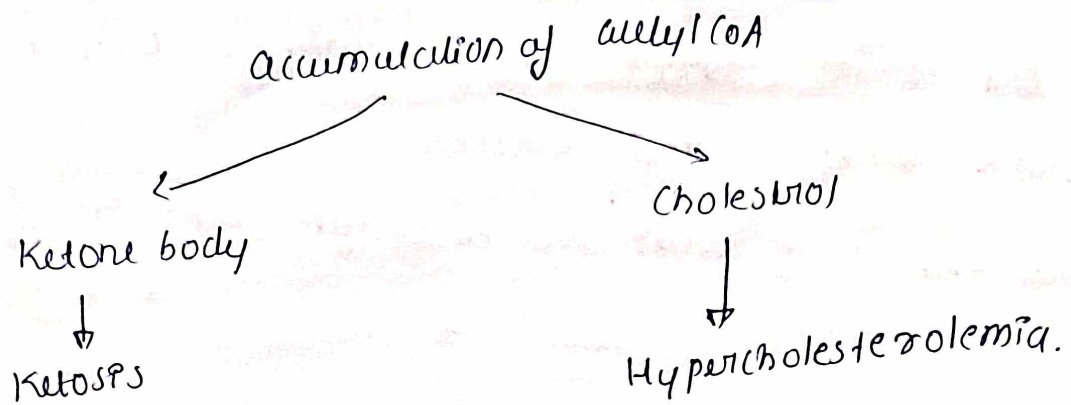 accumulation of acetyl CoA
Ketone body
Cholestrol
Ketosis
Hypercholesterolemia.